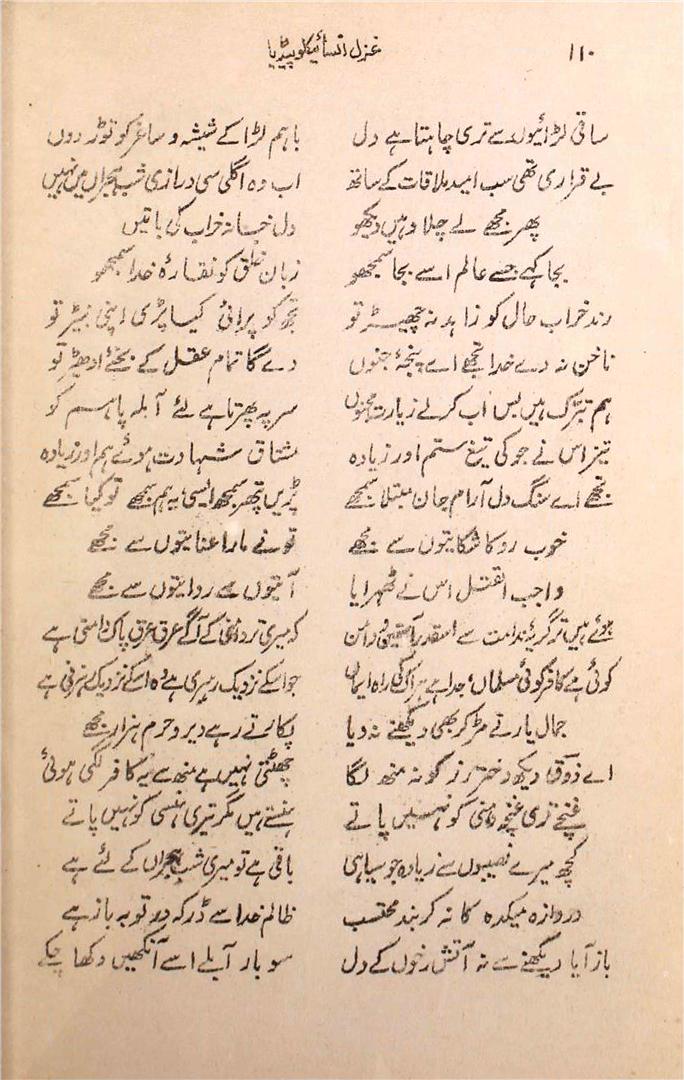 ۱۱۰ غزل انسائیکلوپیڈیا
ساقی لڑائیوں سے تری چاہتا ہے دل باہم لڑا کے شیشہ و ساغر کو توڑ دوں
بے قراری تھی سب امید ملاقات کے ساتھ اب وہ اگلی سی درازی شب ہجراں میں نہیں
پھر مجھے لے چلا وہیں دیکھو دل خانہ خراب کی باتیں
بجا کہے جسے عالم اسے بجا سمجھو زبان خلق کو نقارۂ خدا سمجھو
رند خراب حال کو زاہد نہ چھیڑ تو تجھ کو پرائی کیا پڑی اپنی نبیڑ تو
ناخن نہ دے خدا تجھے اے پنجۂ جنوں دے گا تمام عقل کے بخئے ادھیڑ تو
ہم تبرک ہیں بس اب کر لے زیارت مجنوں سر پہ پھرتا ہے لئے آبلہ پا ہم کو
تیز اس نے جو کی تیغ ستم اور زیادہ مشتاق شہادت ہوئے ہم اور زیادہ
تجھے اے سنگ دل آرام جان مبتلا سمجھے پڑیں پتھر سمجھ ایسی پہ ہم سمجھے تو کیا سمجھے
خوب روکا شکایتوں سے مجھے تو نے مارا عنایتوں سے مجھے
واجب القتل اس نے ٹھہرایا آیتوں سے روایتوں سے مجھے
ہوئے ہیں تر گریۂ ندامت سے اسقدر آستین و دامن کہ میری تر دامنی کے آگے عرق عرق پاک دامنی ہے
کوئی ہے کافر کوئی مسلماں، جدا ہے ہر اک کی راہ ایماں جو اسکے نزدیک رہبری ہے وہ اسکے نزدیک رہزنی ہے
جمال یار نے مڑ کر بھی دیکھنے نہ دیا پکارتے رہے دیر و حرم ہزار مجھے
اے ذوق دیکھ دختر رز کو نہ منھ لگا چھٹتی نہیں ہے منھ سے یہ کافر لگی ہوئی
غنچے تری غنچہ دہنی کو نہیں پاتے ہنستے ہیں مگر تیری ہنسی کو نہیں پاتے
کچھ میرے نصیبوں سے زیادہ جو سیاہی باقی ہے تو میری شب ہجراں کے لئے ہے
دروازہ میکدہ کا نہ کر بند محتسب ظالم خدا سے ڈر کہ در توبہ باز ہے
باز آیا دیکھنے سے نہ آتش رخوں کے دل سو بار آبلے اسے آنکھیں دکھا چکے